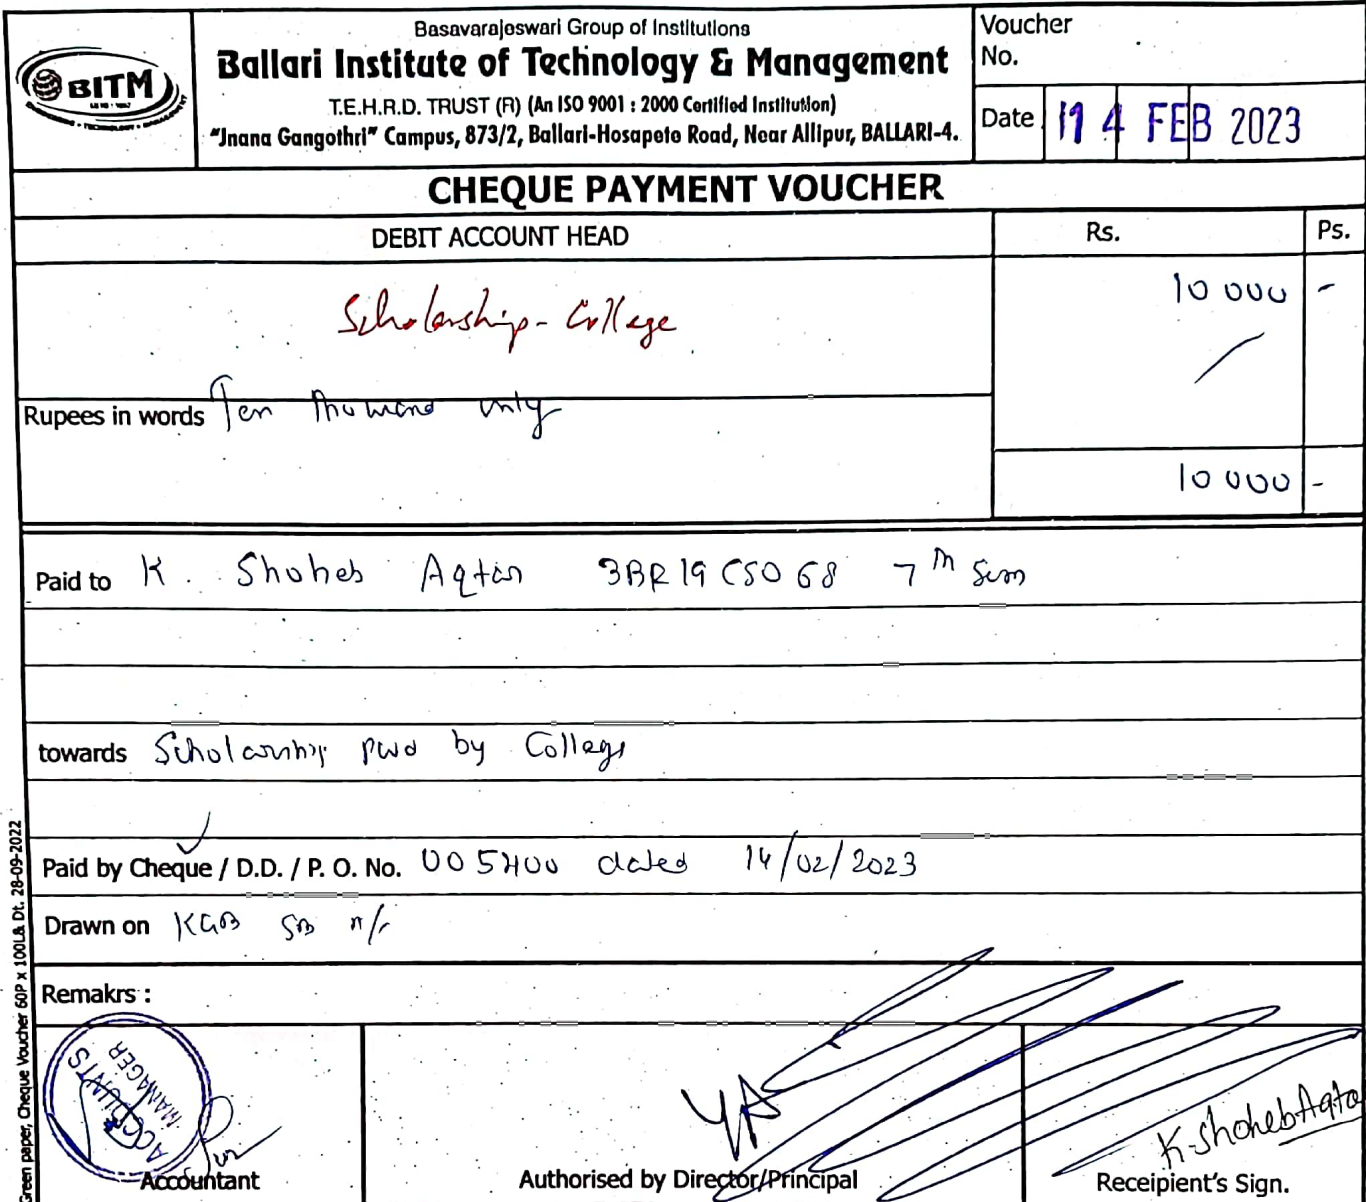 Basavarajeswari Group of Institutions
Ballari Institute of Technology & Management
T.E.H.R.D. TRUST (R) (An ISO 9001 : 2000 Certified Institution)
"Jnana Gangothri" Campus, 873/2, Ballari-Hosapete Road, Near Allipur, BALLARI-4.
BITM
Voucher
No.
Date 14 FEB 2023
CHEQUE PAYMENT VOUCHER
DEBIT ACCOUNT HEAD Rs. Ps.
Scholarship - College 10 000 -
Rupees in words Ten Thousand only
10 000 -
Paid to K. Shoheb Aqtar 3BR19CS068 7th Sem
towards Scholarship paid by College
Paid by Cheque / D.D. / P. O. No. 005400 dated 14/02/2023
Drawn on KGB SB A/c
Remakrs :
ACCOUNTS
MANAGER
K-Shoheb Aqta
Accountant Authorised by Director/Principal Receipient's Sign.
Green paper, Cheque Voucher 60P x 100L& Dt. 28-09-2022